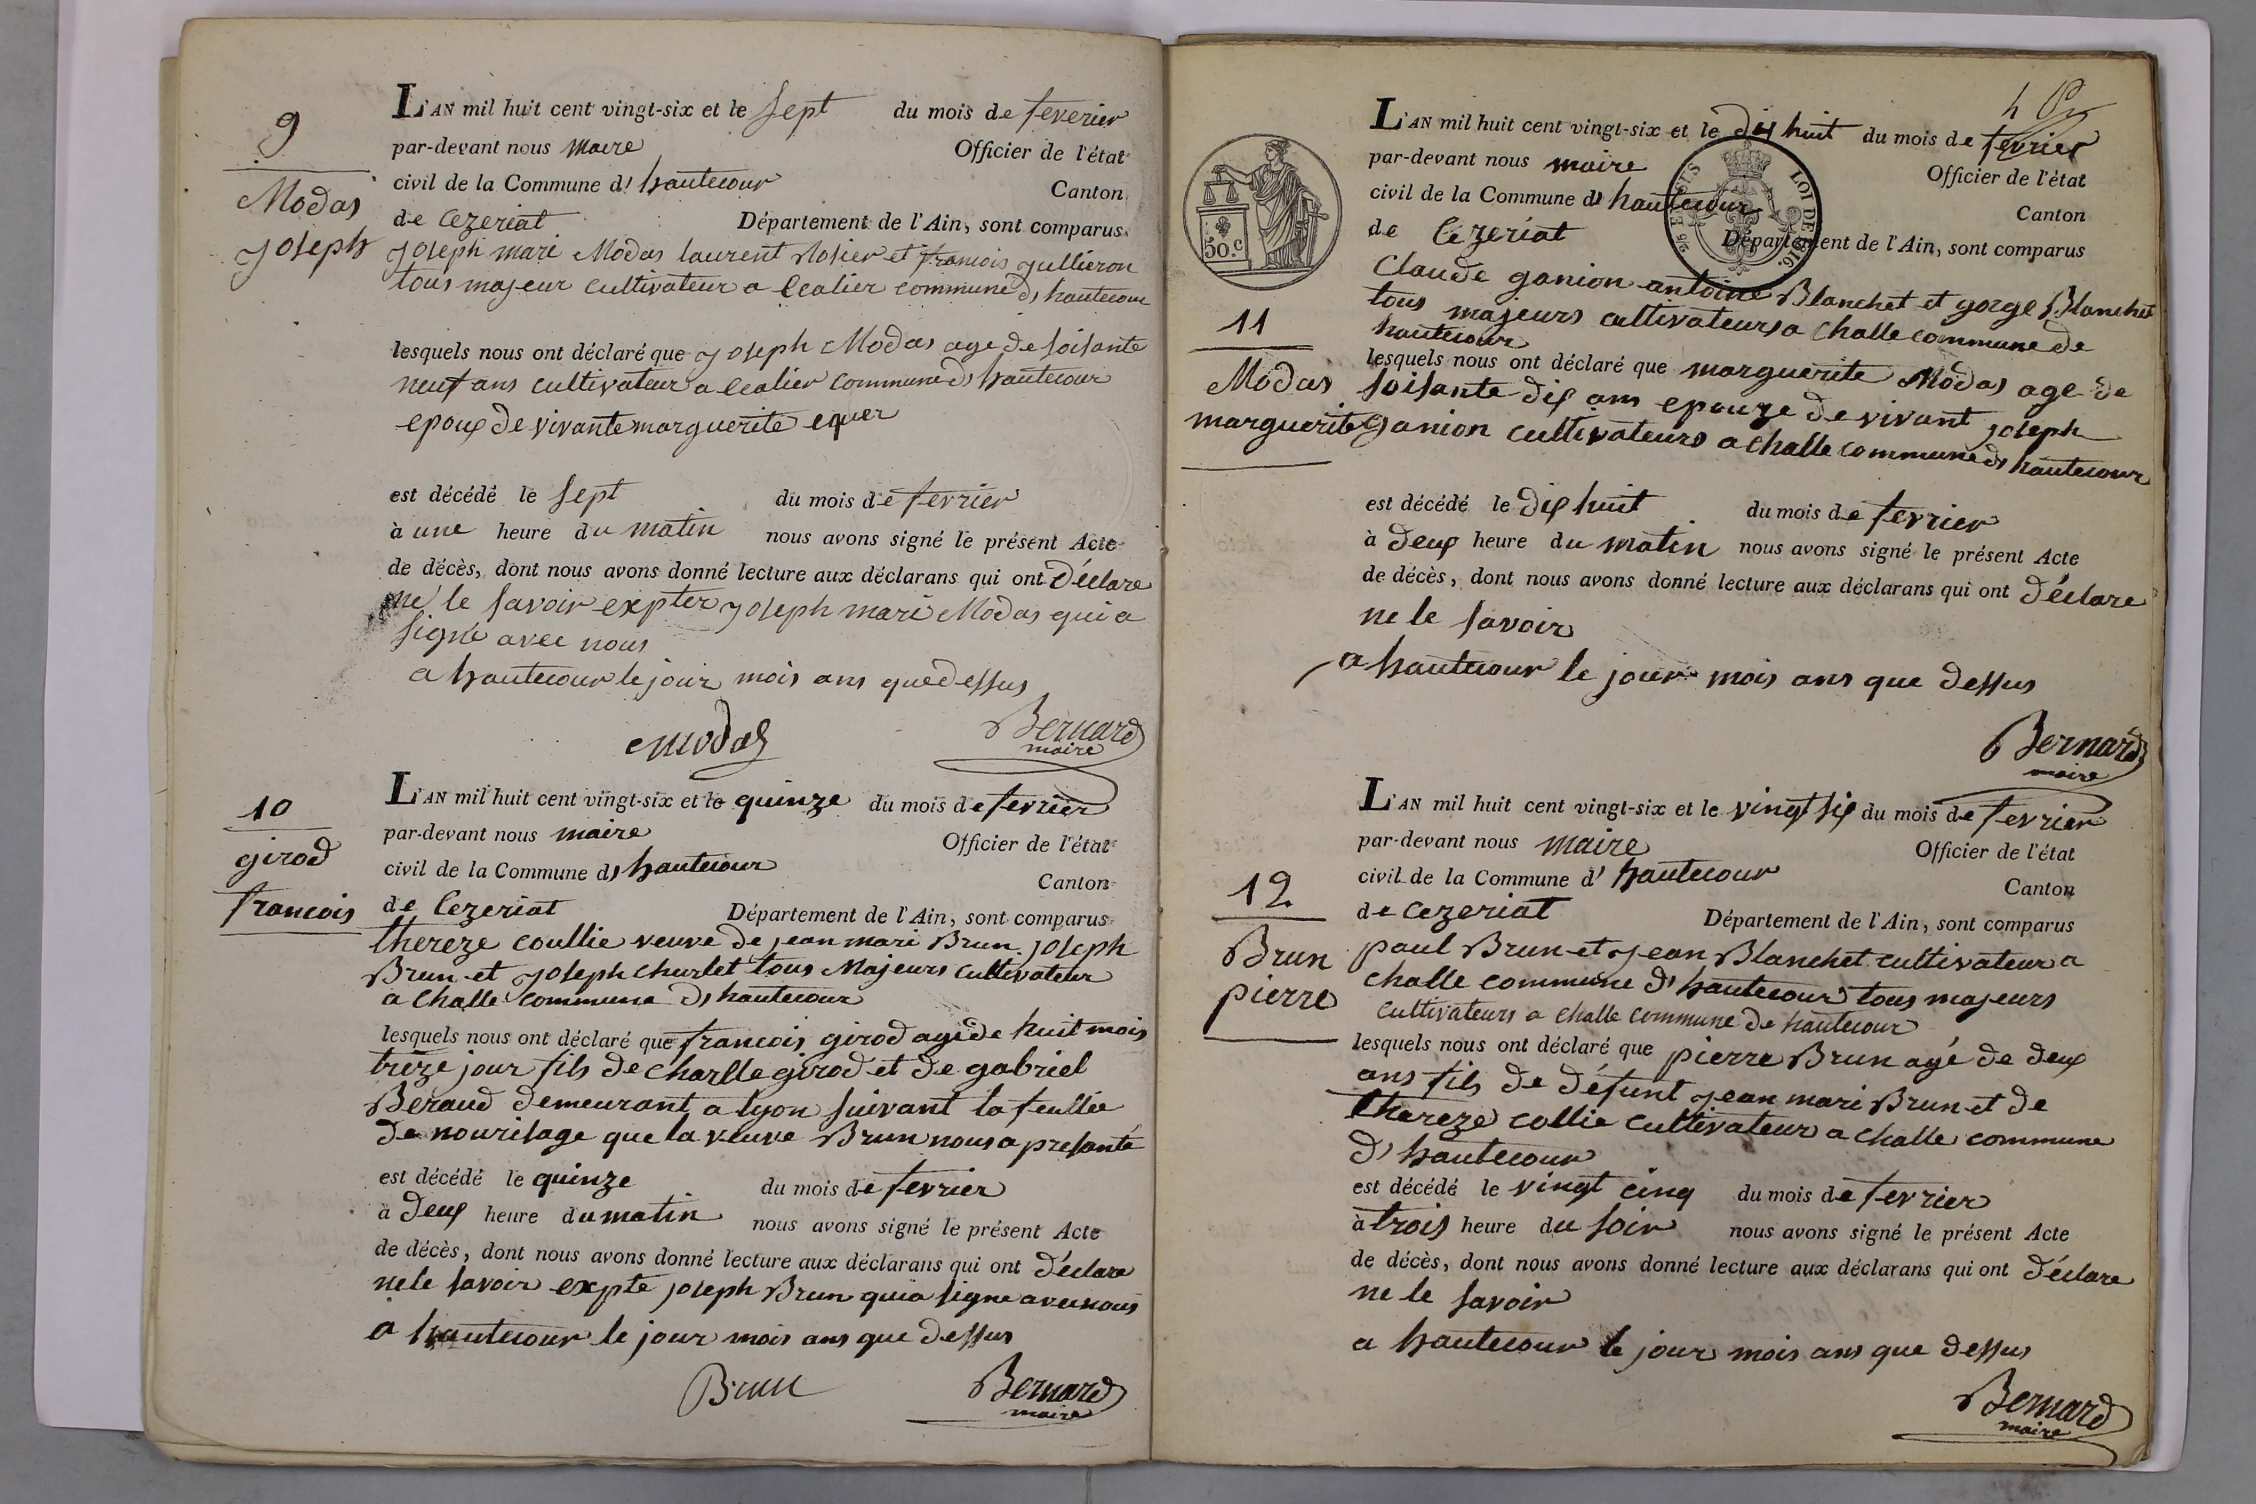 9
Modas
Joseph
L'AN mil huit cent vingt-six et le sept du mois de feverier
par-devant nous maire Officier de l'état
civil de la Commune d' hautecour Canton
de Cezeriat Département de l'Ain, sont comparus
Joseph mari Modas laurent et francois jullieron
tous majeur cultivateur a commune d, hautecour
lesquels nous ont déclaré que Joseph Modas age de soisante
neuf ans cultivateur a commune d, hautecour
epoux de vivante marguerite
est décédé le sept du mois de fevrier
à une heure du matin nous avons signé le présent Acte
de décès, dont nous avons donné lecture aux déclarans qui ont déclare
ne le savoir expter Joseph mari Modas qui a
signé avec nous
a hautecour le jour mois ans que dessus
modas Bernard
maire
10
girod
francois
L'AN mil huit cent vingt-six et le quinze du mois de fevrier
par-devant nous maire Officier de l'état
civil de la Commune d, hautecour Canton
de Cezeriat Département de l'Ain, sont comparus
thereze coullie veuve de jean mari Brun joseph
Brun et Joseph churlet tous Majeurs cultivateur
a Challe commune d, hautecour
lesquels nous ont déclaré que francois girod agé de huit mois
treze jour fils de Charlle girod et de gabriel
Beraud demeurant a lyon suivant la feullie
de nourisage que la veuve Brun nous a presanté
est décédé le quinze du mois de fevrier
à deux heure du matin nous avons signé le présent Acte
de décès, dont nous avons donné lecture aux déclarans qui ont déclare
ne le savoir expte joseph Brun qui a signe avec nous
a hautecour le jour mois ans que dessus
Brun Bernard
maire
4
50.c
25 EN SUS LOI DE 1816.
11
Modas
marguerite
L'AN mil huit cent vingt-six et le dix huit du mois de fevrier
par-devant nous maire Officier de l'état
civil de la Commune d' hautecour Canton
de Cezeriat Département de l'Ain, sont comparus
Claude ganion antoine Blanchet et gorge Blanchet
tous majeurs cultivateurs a Challe commune de
hautecour
lesquels nous ont déclaré que marguerite Modas age de
soisante dix ans epouze de vivant joseph
ganion cultivateurs a Challe commune d, hautecour
est décédé le dix huit du mois de fevrier
à deux heure du matin nous avons signé le présent Acte
de décès, dont nous avons donné lecture aux déclarans qui ont déclare
ne le savoir
a hautecour le jour mois ans que dessus
Bernard
maire
12
Brun
pierre
L'AN mil huit cent vingt-six et le vingt six du mois de fevrier
par-devant nous maire Officier de l'état
civil de la Commune d' hautecour Canton
de Cezeriat Département de l'Ain, sont comparus
paul Brun et Jean Blanchet cultivateur a
Challe commune d' hautecour tous majeurs
cultivateurs a Challe commune de hautecour
lesquels nous ont déclaré que pierre Brun agé de deux
ans fils de défunt Jean mari Brun et de
thereze collie cultivateur a Challe commune
d, hautecour
est décédé le vingt cinq du mois de fevrier
à trois heure du soir nous avons signé le présent Acte
de décès, dont nous avons donné lecture aux déclarans qui ont déclare
ne le savoir
a hautecour le jour mois ans que dessus
Bernard
maire